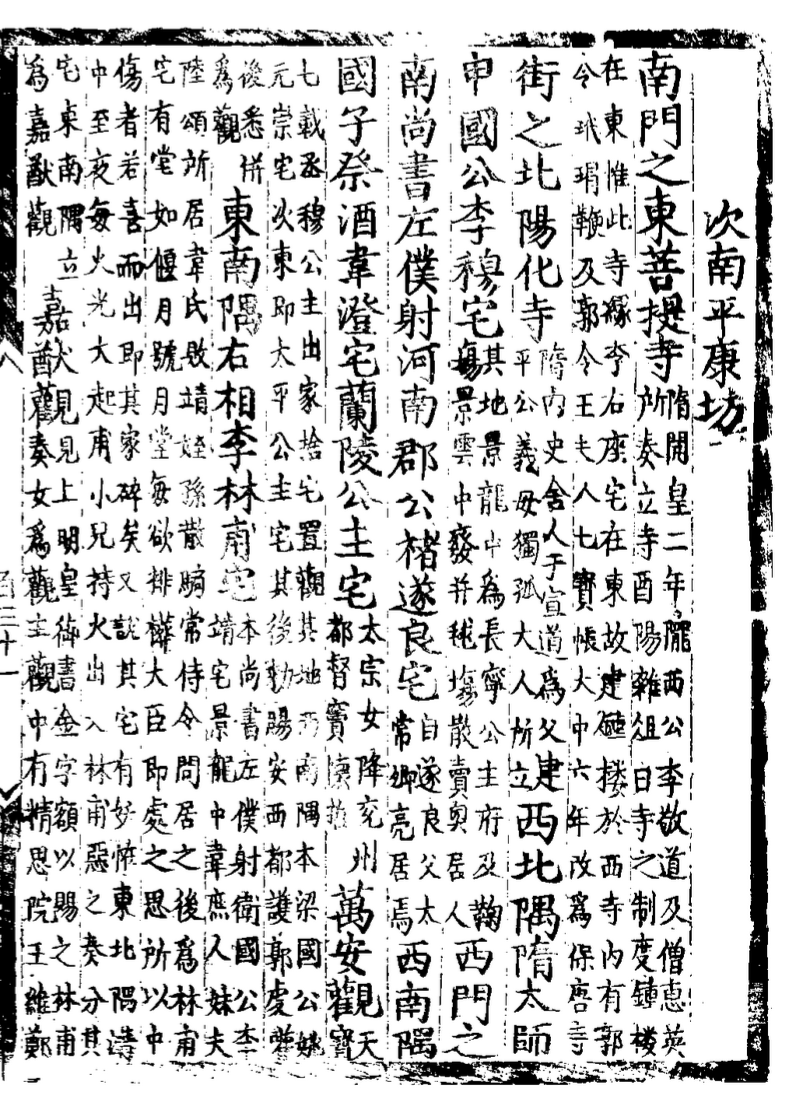 次南平康坊
南門之東菩提寺隋開皇二年隴西公李敬道及僧惠英
所奏立寺酉陽雜俎曰寺之制度鍾樓
在東惟此寺縁李右座宅在東故建鍾樓於西寺内有郭
令玳瑁鞭及郭令王夫人七寳帳大中六年改爲保唐寺
街之北陽化寺隋内史舍人于宣道爲父建
平公義母獨孤大人所立西北隅隋太師
申國公李穆宅其地景龍中爲長寧公主府及鞠
塲景雲中廢并毬塲散賣與居人西門之
南尚書左僕射河南郡公褚遂良宅自遂良父太
常卿亮居焉西南隅
國子祭酒韋澄宅蘭陵公主宅太宗女降兖州
都督竇懐悊萬安觀天
寳
七載丞穆公主出家捨宅置觀其地西南隅本梁國公姚
元崇宅次東即太平公主宅其後勑賜安西都護郭虔瓘
後悉併
爲觀東南隅右相李林甫宅本尚書左僕射衛國公李
靖宅景龍中韋庶人妹夫
陸頌所居韋氏敗靖姪孫散騎常侍令問居之後爲林甫
宅有堂如偃月號月堂毎欲排搆大臣即處之思所以中
傷者若喜而出即其家碎矣又說其宅有妖怪東北隅溝
中至夜每火光大起甫小兒持火出入林甫惡之奏分其
宅東南隅立犬見見上明皇御書金字額以賜之林甫
爲嘉猷觀嘉猷觀奏女爲觀主觀中有精思院王維鄭